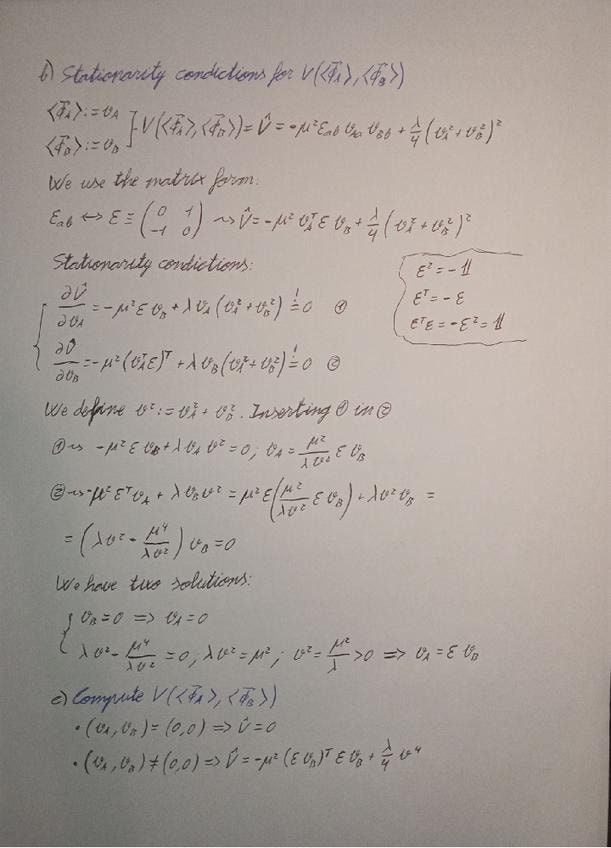 b) Stationarity condictions for V(⟨Φ̄_A⟩, ⟨Φ̄_B⟩)
⟨Φ̄_A⟩ := v_A
⟨Φ̄_B⟩ := v_B ] V(⟨Φ̄_A⟩, ⟨Φ̄_B⟩) = V̂ = -μ² ε_ab v_Aa v_Bb + λ/4 (v_A² + v_B²)²
We use the matrix form:
ε_ab ↔ ε ≡ (0 1; -1 0) ⇝ V̂ = -μ² v_A^T ε v_B + λ/4 (v_A² + v_B²)²
Stationarity condictions:
ε² = -𝟙
ε^T = -ε
ε^T ε = -ε² = 𝟙
∂V̂/∂v_A = -μ² ε v_B + λ v_A (v_A² + v_B²) =! 0 ①
∂V̂/∂v_B = -μ² (v_A^T ε)^T + λ v_B (v_A² + v_B²) =! 0 ②
We define v² := v_A² + v_B². Inserting ① in ②
① ⇝ -μ² ε v_B + λ v_A v² = 0; v_A = μ²/(λ v²) ε v_B
② ⇝ -μ² ε^T v_A + λ v_B v² = μ² ε (μ²/(λ v²) ε v_B) + λ v² v_B =
= (λ v² - μ⁴/(λ v²)) v_B = 0
We have two solutions:
v_B = 0 ⇒ v_A = 0
λ v² - μ⁴/(λ v²) = 0; λ v² = μ²; v² = μ²/λ > 0 ⇒ v_A = ε v_B
c) Compute V(⟨Φ̄_A⟩, ⟨Φ̄_B⟩)
• (v_A, v_B) = (0,0) ⇒ V̂ = 0
• (v_A, v_B) ≠ (0,0) ⇒ V̂ = -μ² (ε v_B)^T ε v_B + λ/4 v⁴